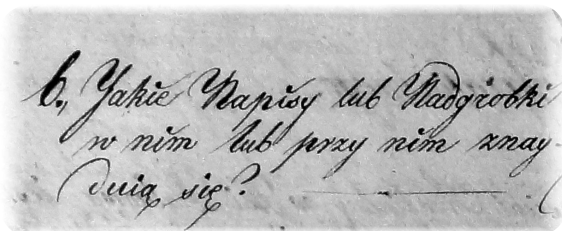 6., Jakie Napisy lub Nadgrobki
w nim lub przy nim znay-
duią się?